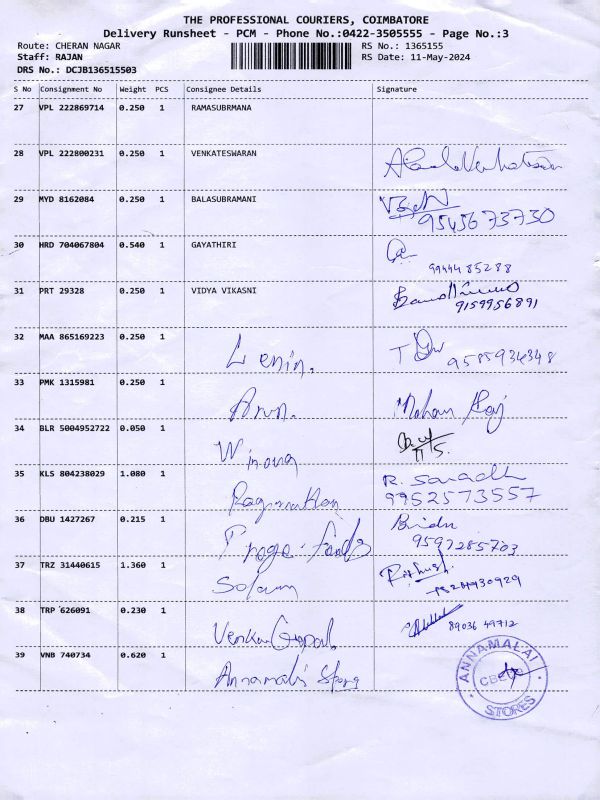 THE PROFESSIONAL COURIERS, COIMBATORE
Delivery Runsheet - PCM - Phone No.:0422-3505555 - Page No.:3
Route: CHERAN NAGAR RS No.: 1365155
Staff: RAJAN RS Date: 11-May-2024
DRS No.: DCJB136515503
S No Consignment No Weight PCS Consignee Details Signature
27 VPL 222869714 0.250 1 RAMASUBRMANA
28 VPL 222800231 0.250 1 VENKATESWARAN
29 MYD 8162084 0.250 1 BALASUBRAMANI
9545673730
30 HRD 704067804 0.540 1 GAYATHIRI
9944485288
31 PRT 29328 0.250 1 VIDYA VIKASNI
9159956891
32 MAA 865169223 0.250 1 Lenin.
9585934348
33 PMK 1315981 0.250 1 Arun. Mohan Raj
34 BLR 5004952722 0.050 1
35 KLS 804238029 1.080 1 R. Saradh
9952573557
36 DBU 1427267 0.215 1
9597285703
37 TRZ 31440615 1.360 1
38 TRP 626091 0.230 1 Venku Gopal. 89036 49712
39 VNB 740734 0.620 1
ANNAMALAI
STORES